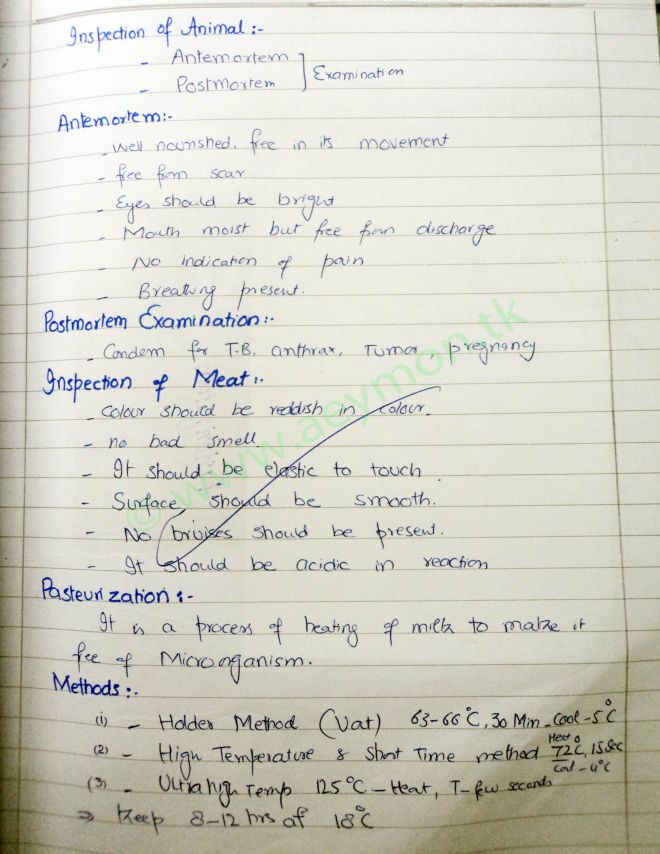 Inspection of Animal :-
- Antemortem
- Postmortem ] Examination
Antemortem:-
- Well nourished, free in its movement
- free from scar
- Eyes should be bright
- Mouth moist but free from discharge
- No indication of pain
- Breathing present.
Postmortem Examination:-
- Condem for T.B, anthrax, Tumor, pregnancy
Inspection of Meat:-
- Colour should be reddish in colour.
- no bad smell.
- It should be elastic to touch
- Surface should be smooth.
- No bruises should be present.
- It should be acidic in reaction
Pasteurization :-
It is a process of heating of milk to make it
free of Microorganism.
Methods :-
(1) - Holder Method (Vat) 63-66°C, 30 Min - Cool - 5°C
(2) - High Temperature & Short Time method Heat 72°C, 15 Sec
Cool - 4°C
(3) - Ultra high Temp 125°C - Heat, T - few seconds
⇒ Keep 8-12 hrs at 18°C
© www.aeymon.tk